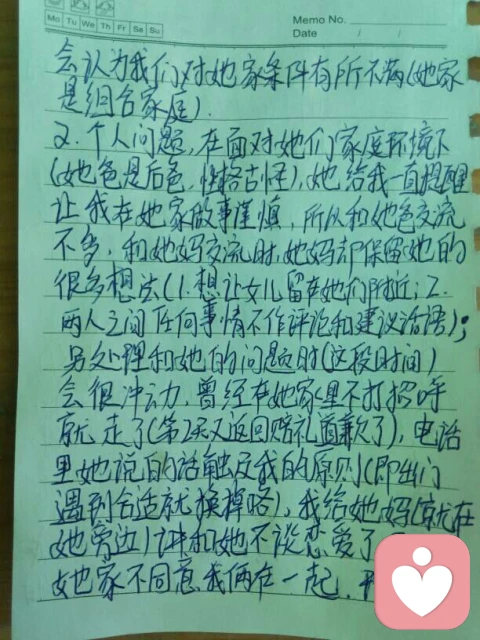 Mo Tu We Th Fr Sa Su
Memo No.
Date / /
会认为我们对她家条件有所不满(她家
是组合家庭).
2.个人问题,在面对她们家庭环境下
(她爸是后爸,性格古怪),她给我一直提醒
让我在她家做事谨慎,所以和她爸交流
不多,和她妈交流时,她妈却保留她的
很多想法(1.想让女儿留在她们附近;2.
两人之间任何事情不作评论和建议话语);
另处理和她的问题时(这段时间)
会很冲动,曾经在她家里不打招呼
就走了(第2天又返回赔礼道歉了),电话
里她说的话触及我的原则(即出门
遇到合适就换掉咯),我给她妈(就在
她旁边)讲和她不谈恋爱了
她家不同意我俩在一起.